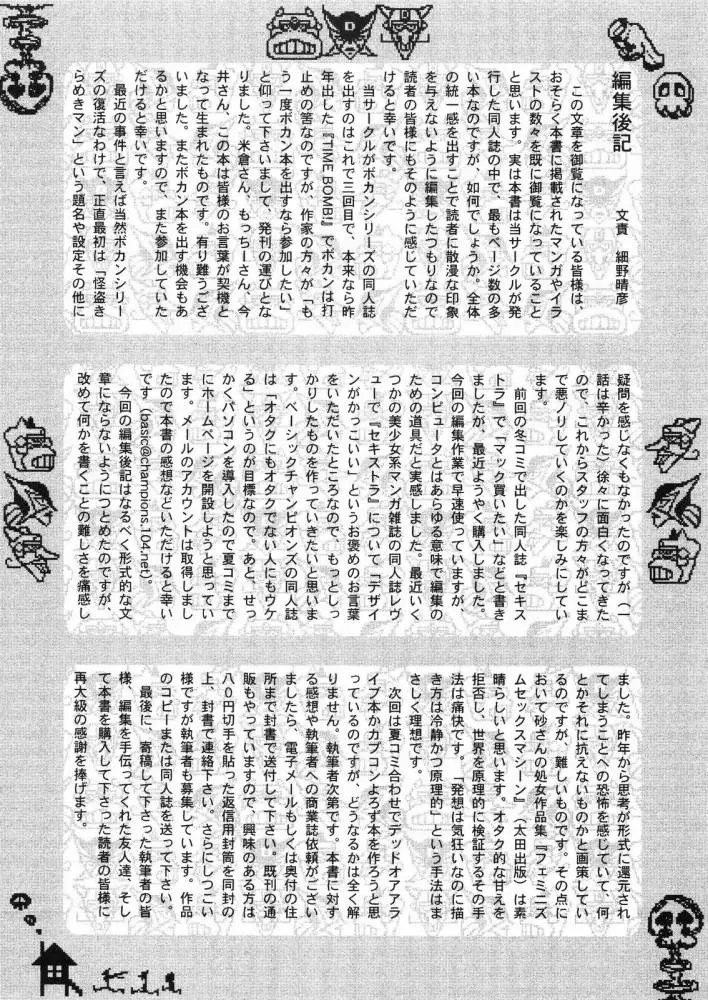 編集後記
文責　細野晴彦
　この文章を御覧になっている皆様は、
おそらく本書に掲載されたマンガやイラ
ストの数々を既に御覧になっていること
と思います。実は本書は当サークルが発
行した同人誌の中で、最もページ数の多
い本なのですが、如何でしょうか。全体
の統一感を出すことで読者に散漫な印象
を与えないように編集したつもりなので
読者の皆様にもそのように感じていただ
けると幸いです。
　当サークルがボカンシリーズの同人誌
を出すのはこれで三回目で、本来なら昨
年出した『TIME BOMB!』でボカンは打
止めの筈なのですが、作家の方々が「も
う一度ボカン本を出すなら参加したい」
と仰って下さいまして、発刊の運びとな
りました。米倉さん、もっちーさん、今
井さん、この本は皆様のお言葉が契機と
なって生まれたものです。有り難うござ
いました。またボカン本を出す機会もあ
るかと思いますので、また参加していた
だけると幸いです。
　最近の事件と言えば当然ボカンシリー
ズの復活なわけで、正直最初は「怪盗き
らめきマン」という題名や設定その他に
疑問を感じなくもなかったのですが（一
話は辛かった）徐々に面白くなってきた
ので、これからスタッフの方々がどこま
で悪ノリしていくのかを楽しみにしてい
ます。
　前回の冬コミで出した同人誌『セキス
トラ』で「マック買いたい」などと書き
ましたが、最近ようやく購入しました。
今回の編集作業で早速使っていますが、
コンピュータとはあらゆる意味で編集の
ための道具だと実感しました。最近いく
つかの美少女系マンガ雑誌の同人誌レヴ
ューで『セキストラ』について「デザイ
ンがかっこいい」というお褒めのお言葉
をいただいたところなので、もっとしっ
かりしたものを作っていきたいと思いま
す。ベーシックチャンピオンズの同人誌
は「オタクにもオタクでない人にもウケ
る」というのが目標なので。あと、せっ
かくパソコンを導入したので夏コミまで
にホームページを開設しようと思ってい
ます。メールのアカウントは取得しまし
たので本書の感想などいただけると幸い
です（basic@champions.104.net）。
　今回の編集後記はなるべく形式的な文
章にならないようにつとめたのですが、
改めて何かを書くことの難しさを痛感し
ました。昨年から思考が形式に還元され
てしまうことへの恐怖を感じていて、何
とかそれに抗えないものかと画策してい
るのですが、難しいものです。その点に
おいて砂さんの処女作品集『フェミニズ
ムセックスマシーン』（太田出版）は素
晴らしいと思います。オタク的な甘えを
拒否し、世界を原理的に検証するその手
法は痛快です。「発想は気狂いなのに描
き方は冷静かつ原理的」という手法はま
さしく理想です。
　次回は夏コミ合わせでデッドオアアラ
イブ本かカプコンよろず本を作ろうと思
っているのですが、どうなるかは全く解
りません。執筆者次第です。本書に対す
る感想や執筆者への商業誌依頼がござい
ましたら、電子メールもしくは奥付の住
所まで封書で送付して下さい。既刊の通
販もやっていますので、興味のある方は
８０円切手を貼った返信用封筒を同封の
上、封書で連絡下さい。さらにしつこい
様ですが執筆者も募集しています。作品
のコピーまたは同人誌を送って下さい。
　最後に、寄稿して下さった執筆者の皆
様、編集を手伝ってくれた友人達、そし
て本書を購入して下さった読者の皆様に
再大級の感謝を捧げます。